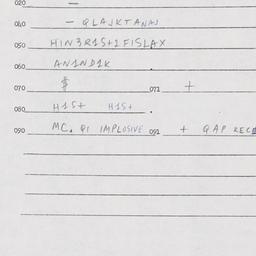 020 —
040 — QLAJKTANAS
050 HIN3R1S+IFISLAX
060 AN1ND1K
070 $ 071 +
080 H1S+ H1S+ .
090 MC. QI IMPLOSIVE 091 + GAP REC